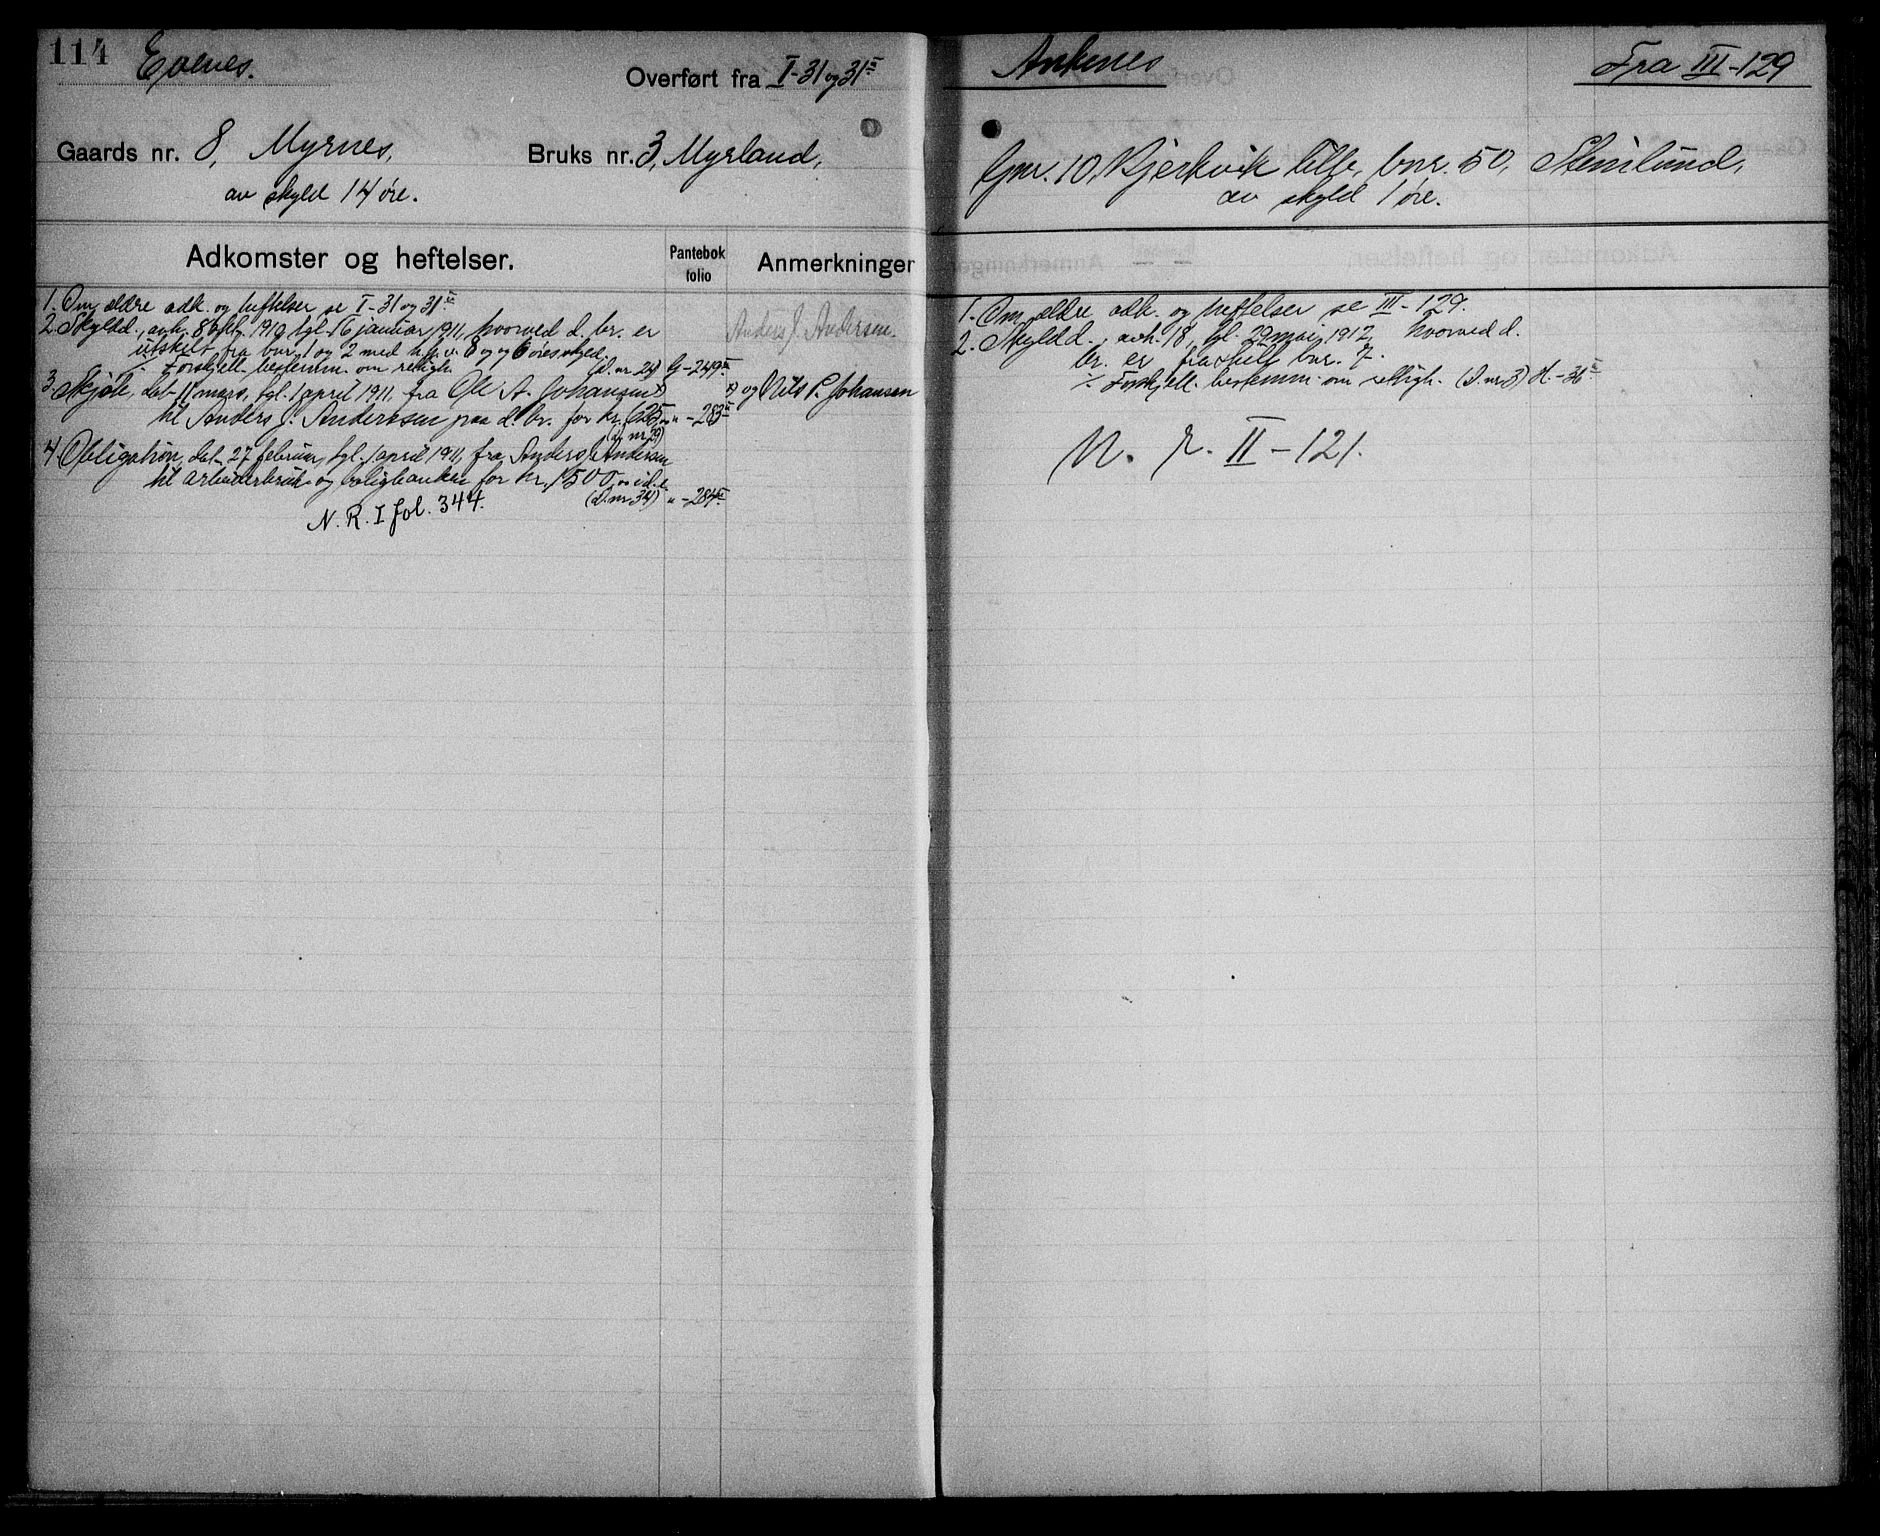 114 Evenes.
Overført fra I-31 og 31ᴵᴵ
Gaards nr. 8, Myrnes, Bruks nr. 3, Myrland,
av skyld 14 øre.
Adkomster og heftelser. Pantebok folio Anmerkninger
1. Om ældre adk. og heftelser se I-31 og 31
2. Skyldd., avh. 8 1910, tgl. 16 januar 1911, hvorved d. br. er
utskilt fra bnr. 1 og 2 med h. h. v. 8 og 6 øre skyld.
÷ Forskjell. bestemm. om rettigh. (D. nr. 24) G-249
Anders J. Andersen.
3. Skjøte, dat. 11 mars, tgl. 1 april 1911, fra Ole A. Johansen x)
x) og Nils P. Johansen
til Anders J. Anderssen paa d. br. for kr. 625,00 " -283
(D. nr. 29)
4. Obligation, dat. 27 februar, tgl. 1 april 1911, fra Anders J. Andersen
til arbeiderbruk- og boligbanken for kr. 1500,00
(D. nr. 34) " -284
N. R. I fol. 344.
Ankenes
Fra III-129
Gnr. 10, Bjerkvik lille, bnr. 50, Stenlund,
av skyld 1 øre.
1. Om ældre adk. og heftelser se III-129.
2. Skyldd., avh. 18, tgl. 29 mai 1912, hvorved d.
br. er fraskilt bnr. 7.
÷ Forskjell. bestemm. om rettigh. (D. nr 3) H-36
N. R. II-121.